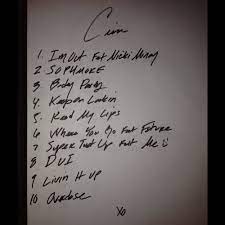 Ciara
1. I'm Out Feat Nicki Minaj
2. SOPHMORE
3. Body Party
4. Keep on Lookin
5. Read My Lips
6 Where You Go Feat Future
7 Super Turnt Up Feat Me
8 DUI
9 Livin It UP
10 Overdose
XO